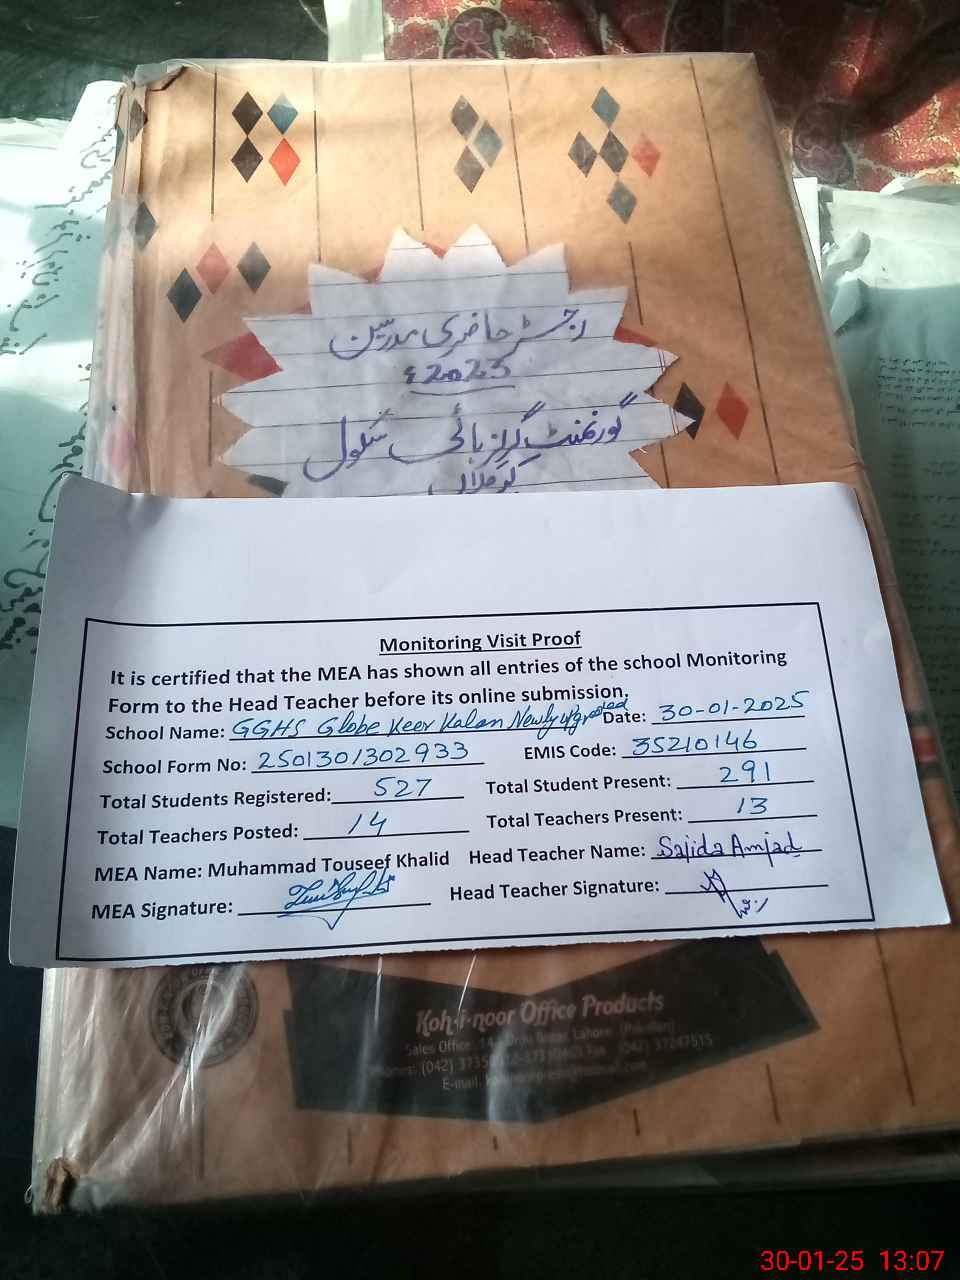 رجسٹر حاضری مدرسین
2023ء
گورنمنٹ گرلز ہائی سکول
Monitoring Visit Proof
It is certified that the MEA has shown all entries of the school Monitoring
Form to the Head Teacher before its online submission.
School Name: GGHS Globe Keer Kalan Newly upgraded Date: 30-01-2025
School Form No: 2501301302933 EMIS Code: 35210146
Total Students Registered: 527 Total Student Present: 291
Total Teachers Posted: 14 Total Teachers Present: 13
MEA Name: Muhammad Touseef Khalid Head Teacher Name: Sajida Amjad
MEA Signature: Head Teacher Signature:
Koh-i-noor Office Products
Sales Office Lahore (Pakistan)
(042) (042) 37247515
E-mail.
30-01-25 13:07